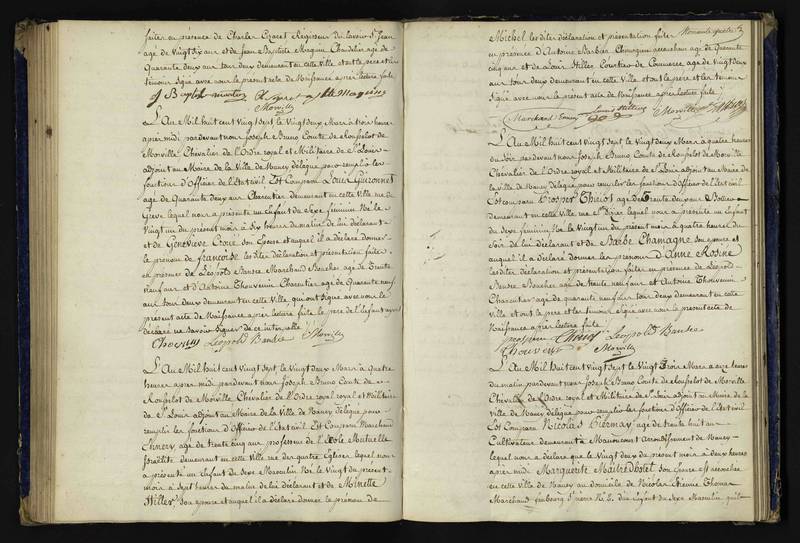 faites en présence de Charles Cezaret Regisseur du lavoir St Jean
age de Vingt six ans et de Jean Baptiste Maguin Chandelier age de
Quarante deux ans tous deux demeurant en cette Ville et ont le pere et les
témoins signé avec nous le présent acte de Naissance après lecture faite
Morville
L'An Mil huit cent Vingt sept le Vingt deux Mars à trois heures
après midi pardevant nous Joseph Bruno Comte de Rousselot de
Morville Chevalier de l'Ordre royal et Militaire de St Louis
adjoint au Maire de la Ville de Nancy délégué pour remplir les
fonctions d'Officier de l'Etat civil Est Comparu Louis Guironnet
age de Quarante deux ans Charcutier demeurant en cette Ville rue de
Greve lequel nous a présenté un Enfant du Sexe féminin Né le
Vingt un du présent mois à Six heures du matin de lui déclarant
et de Geneviève Croié son Epouse et auquel il a déclaré donner
le prenom de françoise les dites déclaration et présentation faites
en présence de Léopold Bansée Marchand Boucher age de Trente
neuf ans et d'Antoine Thouvenin Charcutier age de Quarante neuf
ans tous deux demeurant en cette Ville, qui ont signé avec nous le
présent acte de Naissance après lecture faite le pere de l'Enfant ayant
déclaré ne savoir signer de ce interpellé
Thouvenin Léopold Bansée Morville
L'An Mil huit cent Vingt sept le Vingt deux Mars à Quatre
heures après midi pardevant nous Joseph Bruno Comte de
Rousselot de Morville Chevalier de l'Ordre royal et Militaire
de St Louis adjoint au Maire de la Ville de Nancy délégué pour
remplir les fonctions d'Officier de l'Etat civil Est Comparu Marchand
Ennery age de trente cinq ans professeur de l'Ecole Mutuelle
Israélite demeurant en cette Ville rue des quatre Eglises lequel nous
a présenté un Enfant du Sexe Masculin Né le Vingt du présent
mois à sept heures du matin de lui déclarant et de Minette
Hiller son epouse et auquel il a déclaré donner le prénom de
Michel les dites déclaration et présentation faites
en présence d'Antoine Barbier Chirurgien accoucheur age de Quarante
cinq ans et de Louis Hiller Courtier de Commerce age de Vingt deux
ans tous deux demeurant en cette Ville et ont le pere et les temoins
signé avec nous le présent acte de Naissance après lecture faite
Marchand Ennery Louis Hiller Morville
L'An Mil huit cent Vingt sept le Vingt deux Mars à quatre heures
du soir pardevant nous Joseph Bruno Comte de Rousselot de Morville
Chevalier de l'Ordre royal et Militaire de St Louis adjoint au Maire de
la Ville de Nancy délégué pour remplir les fonctions d'Officier de l'Etat civil
Est comparu Prosper Thiriot age de Trente deux ans
demeurant en cette Ville rue St Dizier lequel nous a présenté un Enfant
du Sexe féminin Né le Vingt un du présent mois à quatre heures du
Soir de lui déclarant et de Barbe Chamagne son epouse et
auquel il a déclaré donner les prenoms d'Anne Rosine
les dites déclaration et présentation faites en présence de Léopold
Bansée Boucher age de trente neuf ans et Antoine Thouvenin
Charcutier age de quarante neuf ans tous deux demeurant en cette
Ville et ont le pere et les temoins signé avec nous le présent acte de
Naissance après lecture faite
prospere Thiriot Léopold Bansée
Thouvenin Morville
L'An Mil huit cent Vingt sept le Vingt Trois Mars à onze heures
du matin pardevant nous Joseph Bruno Comte de Rousselot de Morville
Chevalier de l'Ordre royal et Militaire de St Louis adjoint au Maire de la
Ville de Nancy délégué pour remplir les fonctions d'Officier de l'Etat civil
Est Comparu Nicolas Thermay age de trente huit ans
Cultivateur demeurant à Maixe Arrondissement de Nancy
lequel nous a déclaré que le Vingt deux du présent mois à deux heures
après midi Marguerite Maitredhotel son Epouse est accouchée
en cette ville de Nancy au domicile de Nicolas Etienne Thomas
Marchand faubourg St pierre d'un Enfant du Sexe Masculin qu'il